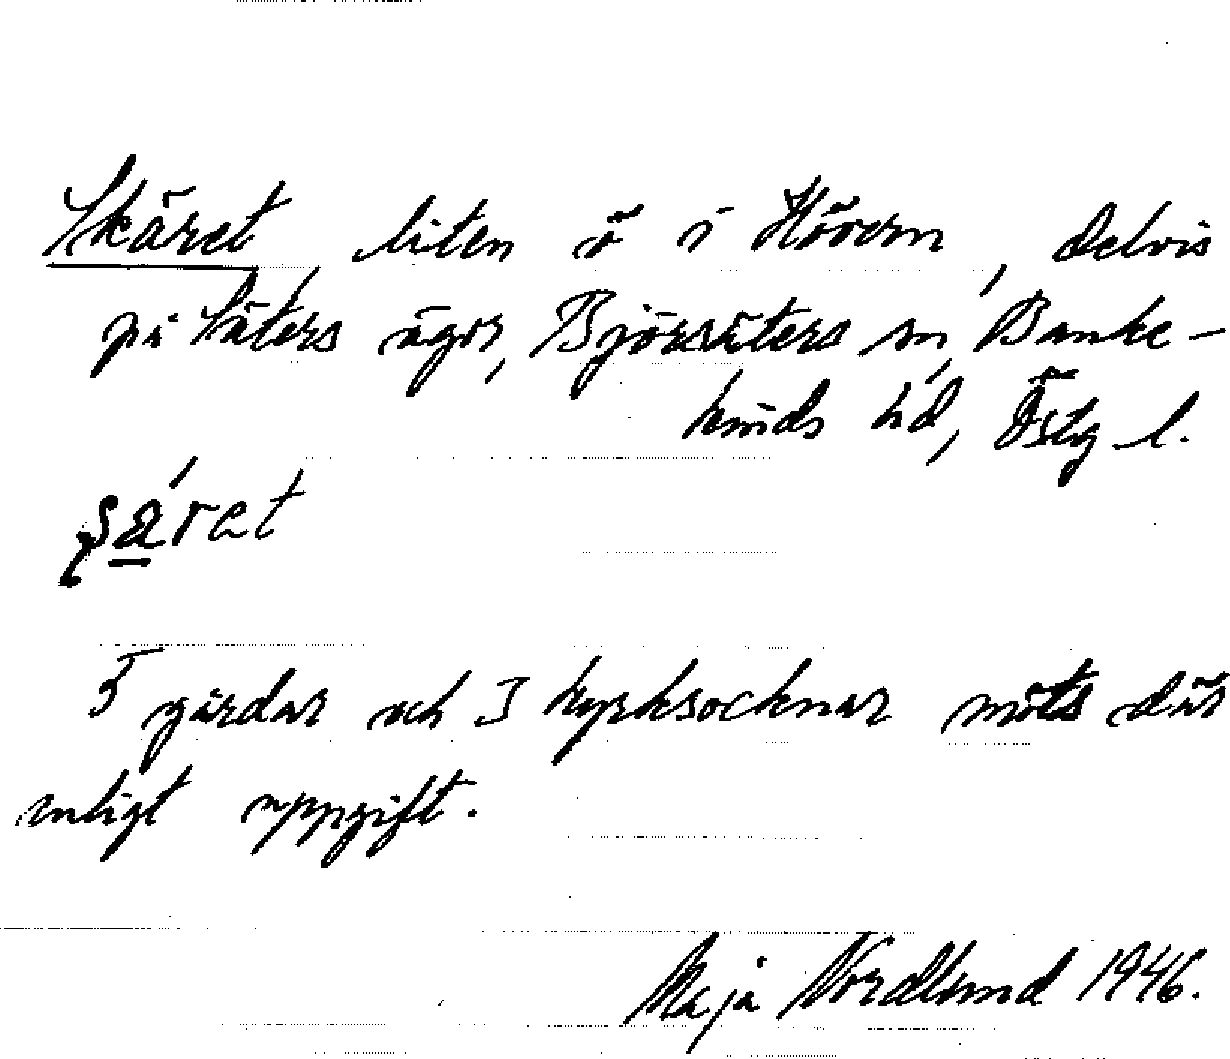 Skäret, liten ö i Hövern, delvis
på Säters ägor, Björsäters sn, Banke-
kinds hd, Östg l.
ʂá̱ret
5 gårdar och 3 kyrksocknar möts där
enligt uppgift.
Maja Nordlund 1946.